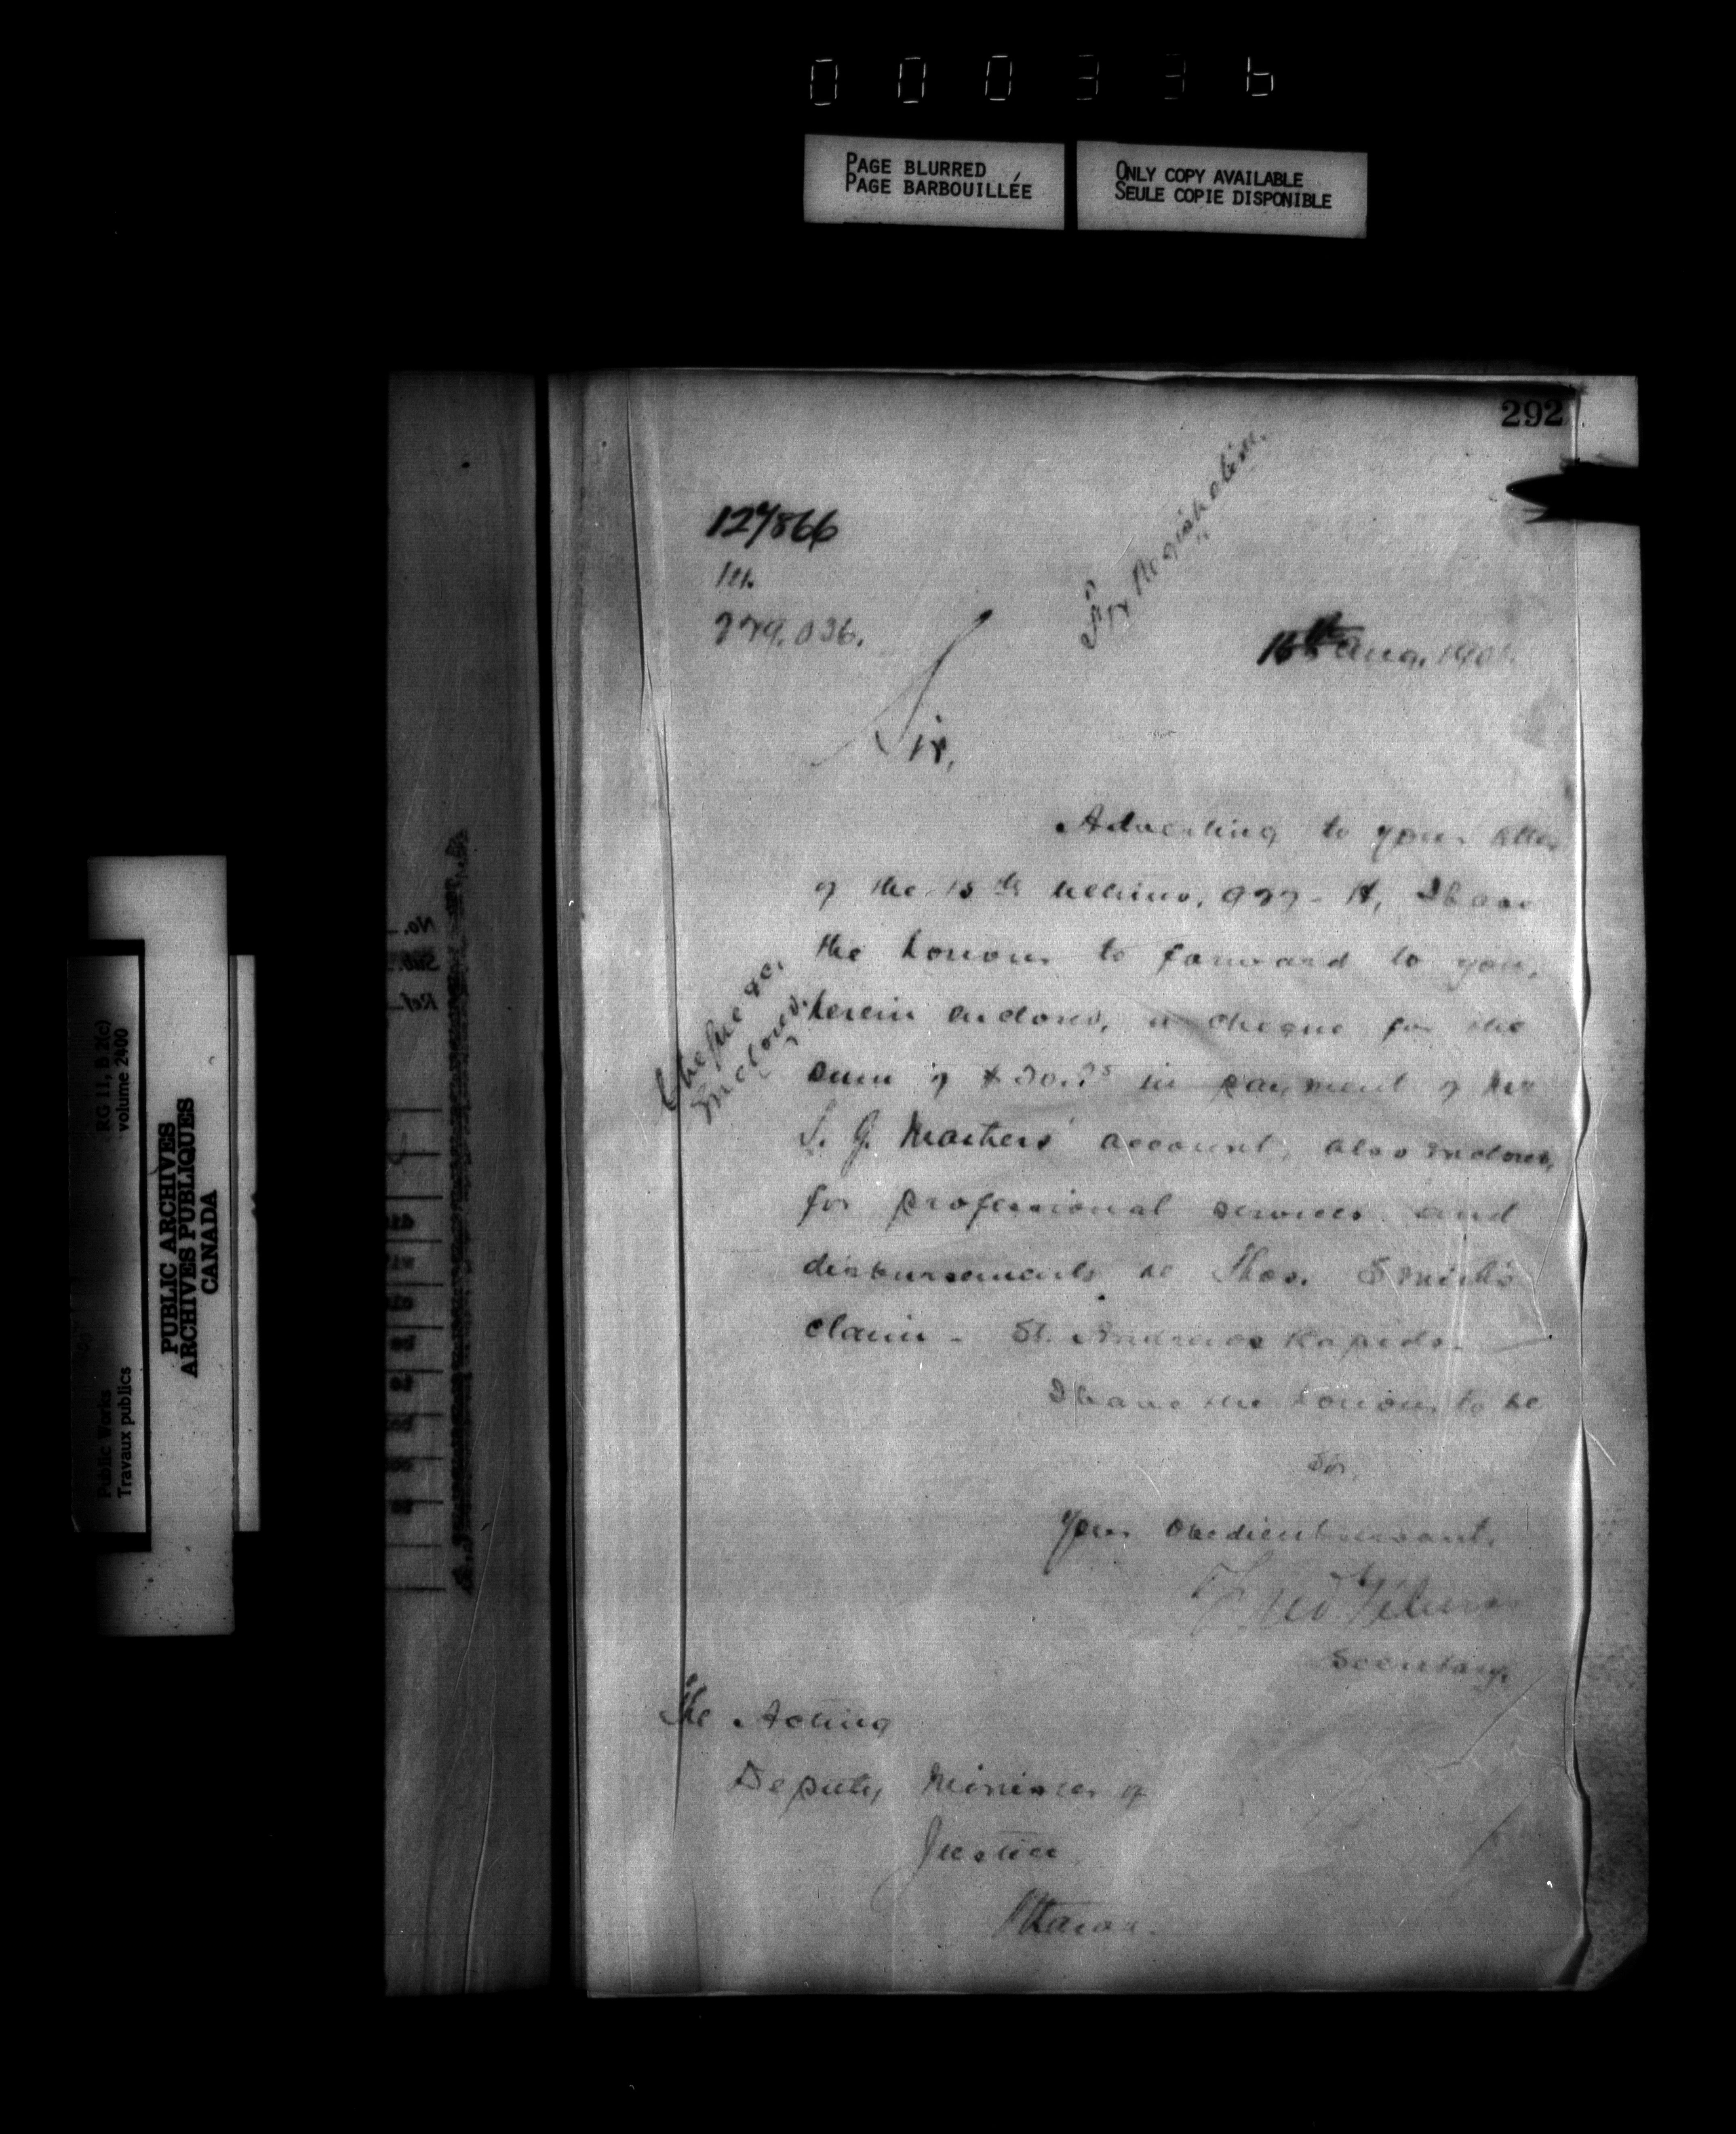 000336
PAGE BLURRED
PAGE BARBOUILLÉE
ONLY COPY AVAILABLE
SEULE COPIE DISPONIBLE
292
127866
By Registration.
279.036.
16th Aug. 190
Sir,
Adverting to your letter
of the 15th ultimo, 977-14, I have
the honour to forward to you,
herein enclosed, a cheque for the
sum of in payment of Mr
S. J. Mathers' account, also enclosed,
for professional services and
disbursements re Thos. Smith's
claim - St. Andrews Rapids.
I have the honour to be
Sir,
Your obedient servant.
Fred Gélinas
Secretary.
The Acting
Deputy Minister of
Justice
Ottawa.
Cheque &c.
Enclosed.
RG 11, B 2(c)
volume 2400
Public Works
Travaux publics
PUBLIC ARCHIVES
ARCHIVES PUBLIQUES
CANADA
No.
Sub.
Ref.